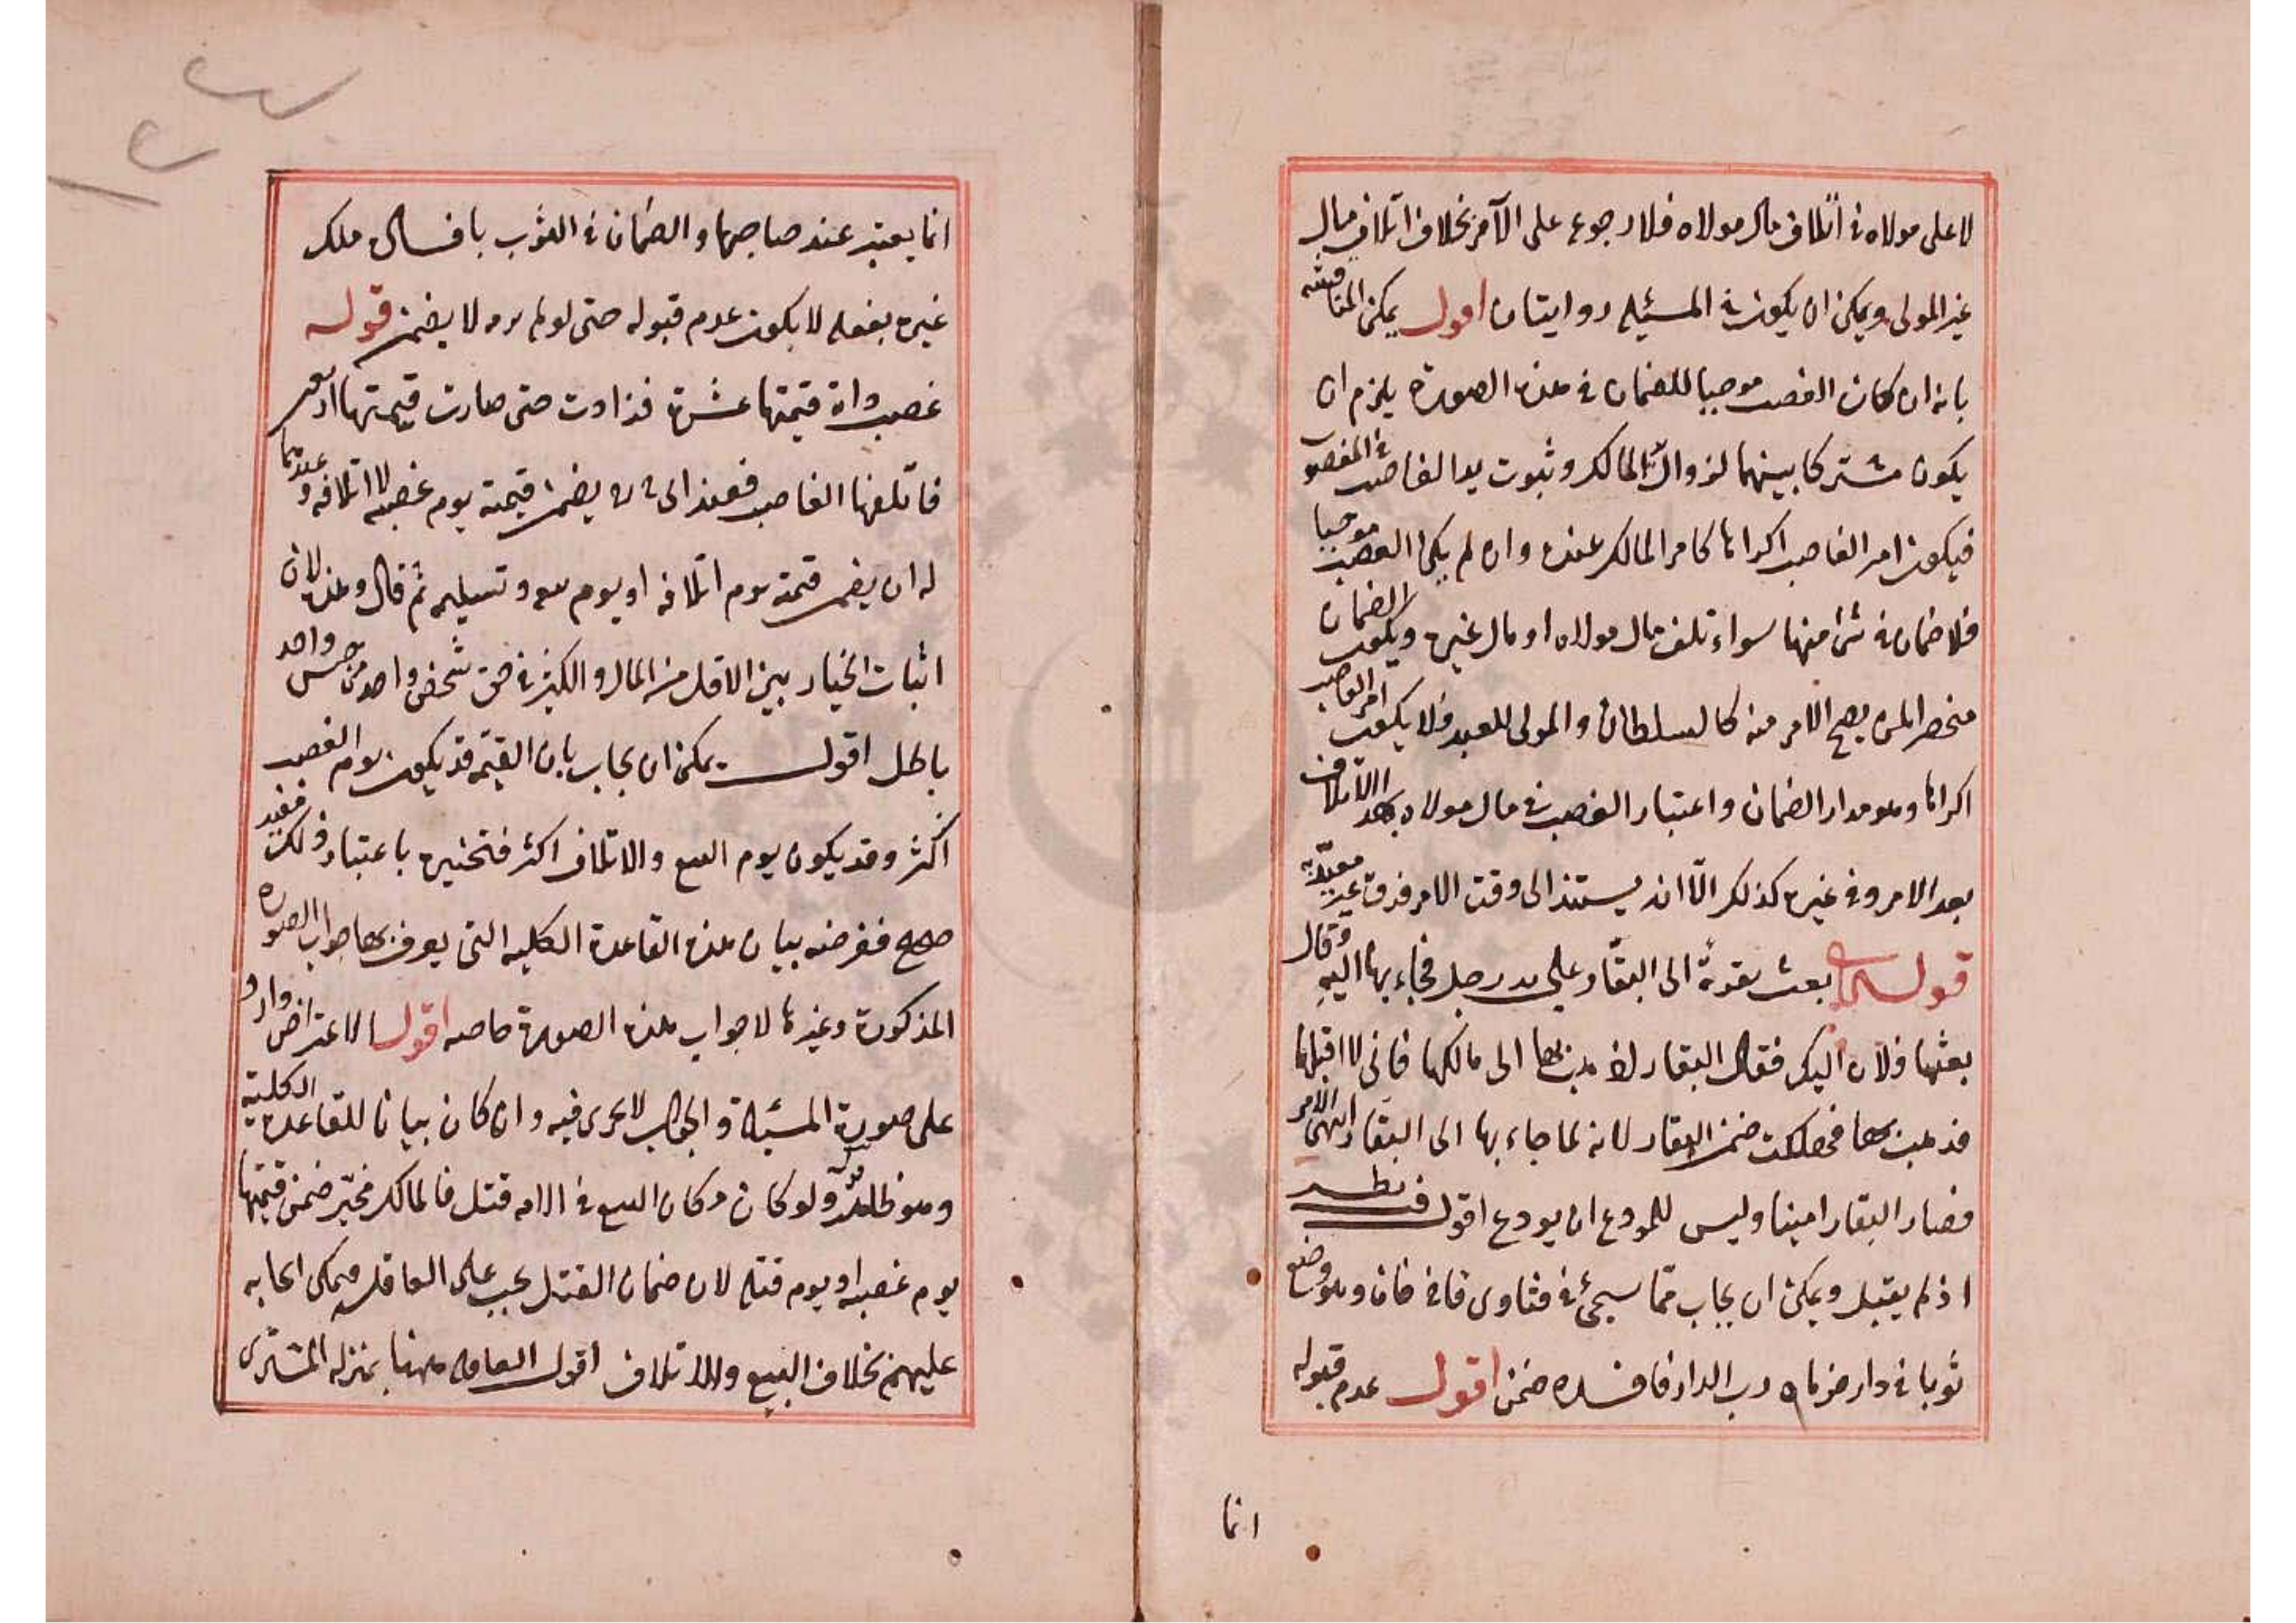 لا على مولاه في اتلاف مال مولاه فلا رجوع على الآمر بخلاف اتلاف مال
غير المولى ويمكن ان يكون في المسئلة روايتان اقول يمكن المناقشة
بانه ان كان الغصب موجبا للضمان في هذه الصورة يلزم ان
يكون مشتركا بينهما لزوال يد المالك وثبوت يد الغاصب في المغصوب
فيكون امر الغاصب اكراها كامر المالك عنده وان لم يكن الغصب موجبا
فلا ضمان في شئ منهما سواء تلف مال مولاه او مال غيره ويكون الضمان
منحصرا لمن يصح الامر منه كالسلطان والمولى للعبد فلا يكون امر الغاصب
اكراها وهو مدار الضمان واعتبار الغصب في مال مولاه بعد الاتلاف
بعد الامر وفي غيره كذلك الا انه يستند الى وقت الامر فرق غير معتد به
قوله بعث بقرة الى البقار على يد رجل فجاء بها اليه وقال
بعثها فلان اليك فقال البقار اذهب بها الى مالكها فاني لا اقبلها
فذهب بها فهلكت ضمن البقار لانه لما جاء بها الى البقار انتهى الامر
فصار البقار امينا وليس للمودع ان يودع اقول فيه نظر
اذ لم يقبل ويمكن ان يجاب مما سيجئ في فتاوى قاضي خان وهو وضع
ثوبا في دار فرماه رب الدار فافسده ضمن اقول عدم قبوله
انما
انما يعتبر عند صاحبها والضمان في الثوب بافساد ملك
غيره بفعله لا بكون عدم قبوله حتى لو لم يرمه لا يضمن قوله
غصب دابة قيمتها عشرة فزادت حتى صارت قيمتها
فاتلفها الغاصب فعند ابي ح ره يضمن قيمته يوم غصبه لا اتلافه وعندهما
له ان يضمن قيمته يوم اتلافه او يوم بيعه وتسليمه ثم قال وهذا لان
اثبات الخيار بين الاقل من المال والكثير في حق شخص واحد من جنس واحد
باطل اقول يمكن ان يجاب بان القيمة قد يكون يوم الغصب
اكثر وقد يكون يوم البيع والاتلاف اكثر فتخييره باعتبار ذلك مفيد
صح فغرضه بيان هذه القاعدة الكلية التي يعرف بها جواب الصورة
المذكورة وغيرها لا جواب هذه الصورة خاصة اقول الاعتراض وارد
على صورة المسئلة والجواب لا يجرى فيه وان كان بيانا للقاعدة الكلية
وهو ظاهر ولو كان مكان البيع في الامة قتل فالمالك مخير ضمن قيمتها
يوم غصبه او يوم قتله لان ضمان القتل يجب على العاقلة فيمكن ايجابه
عليهم بخلاف البيع والاتلاف اقول العاقلة ههنا بمنزلة المشترى